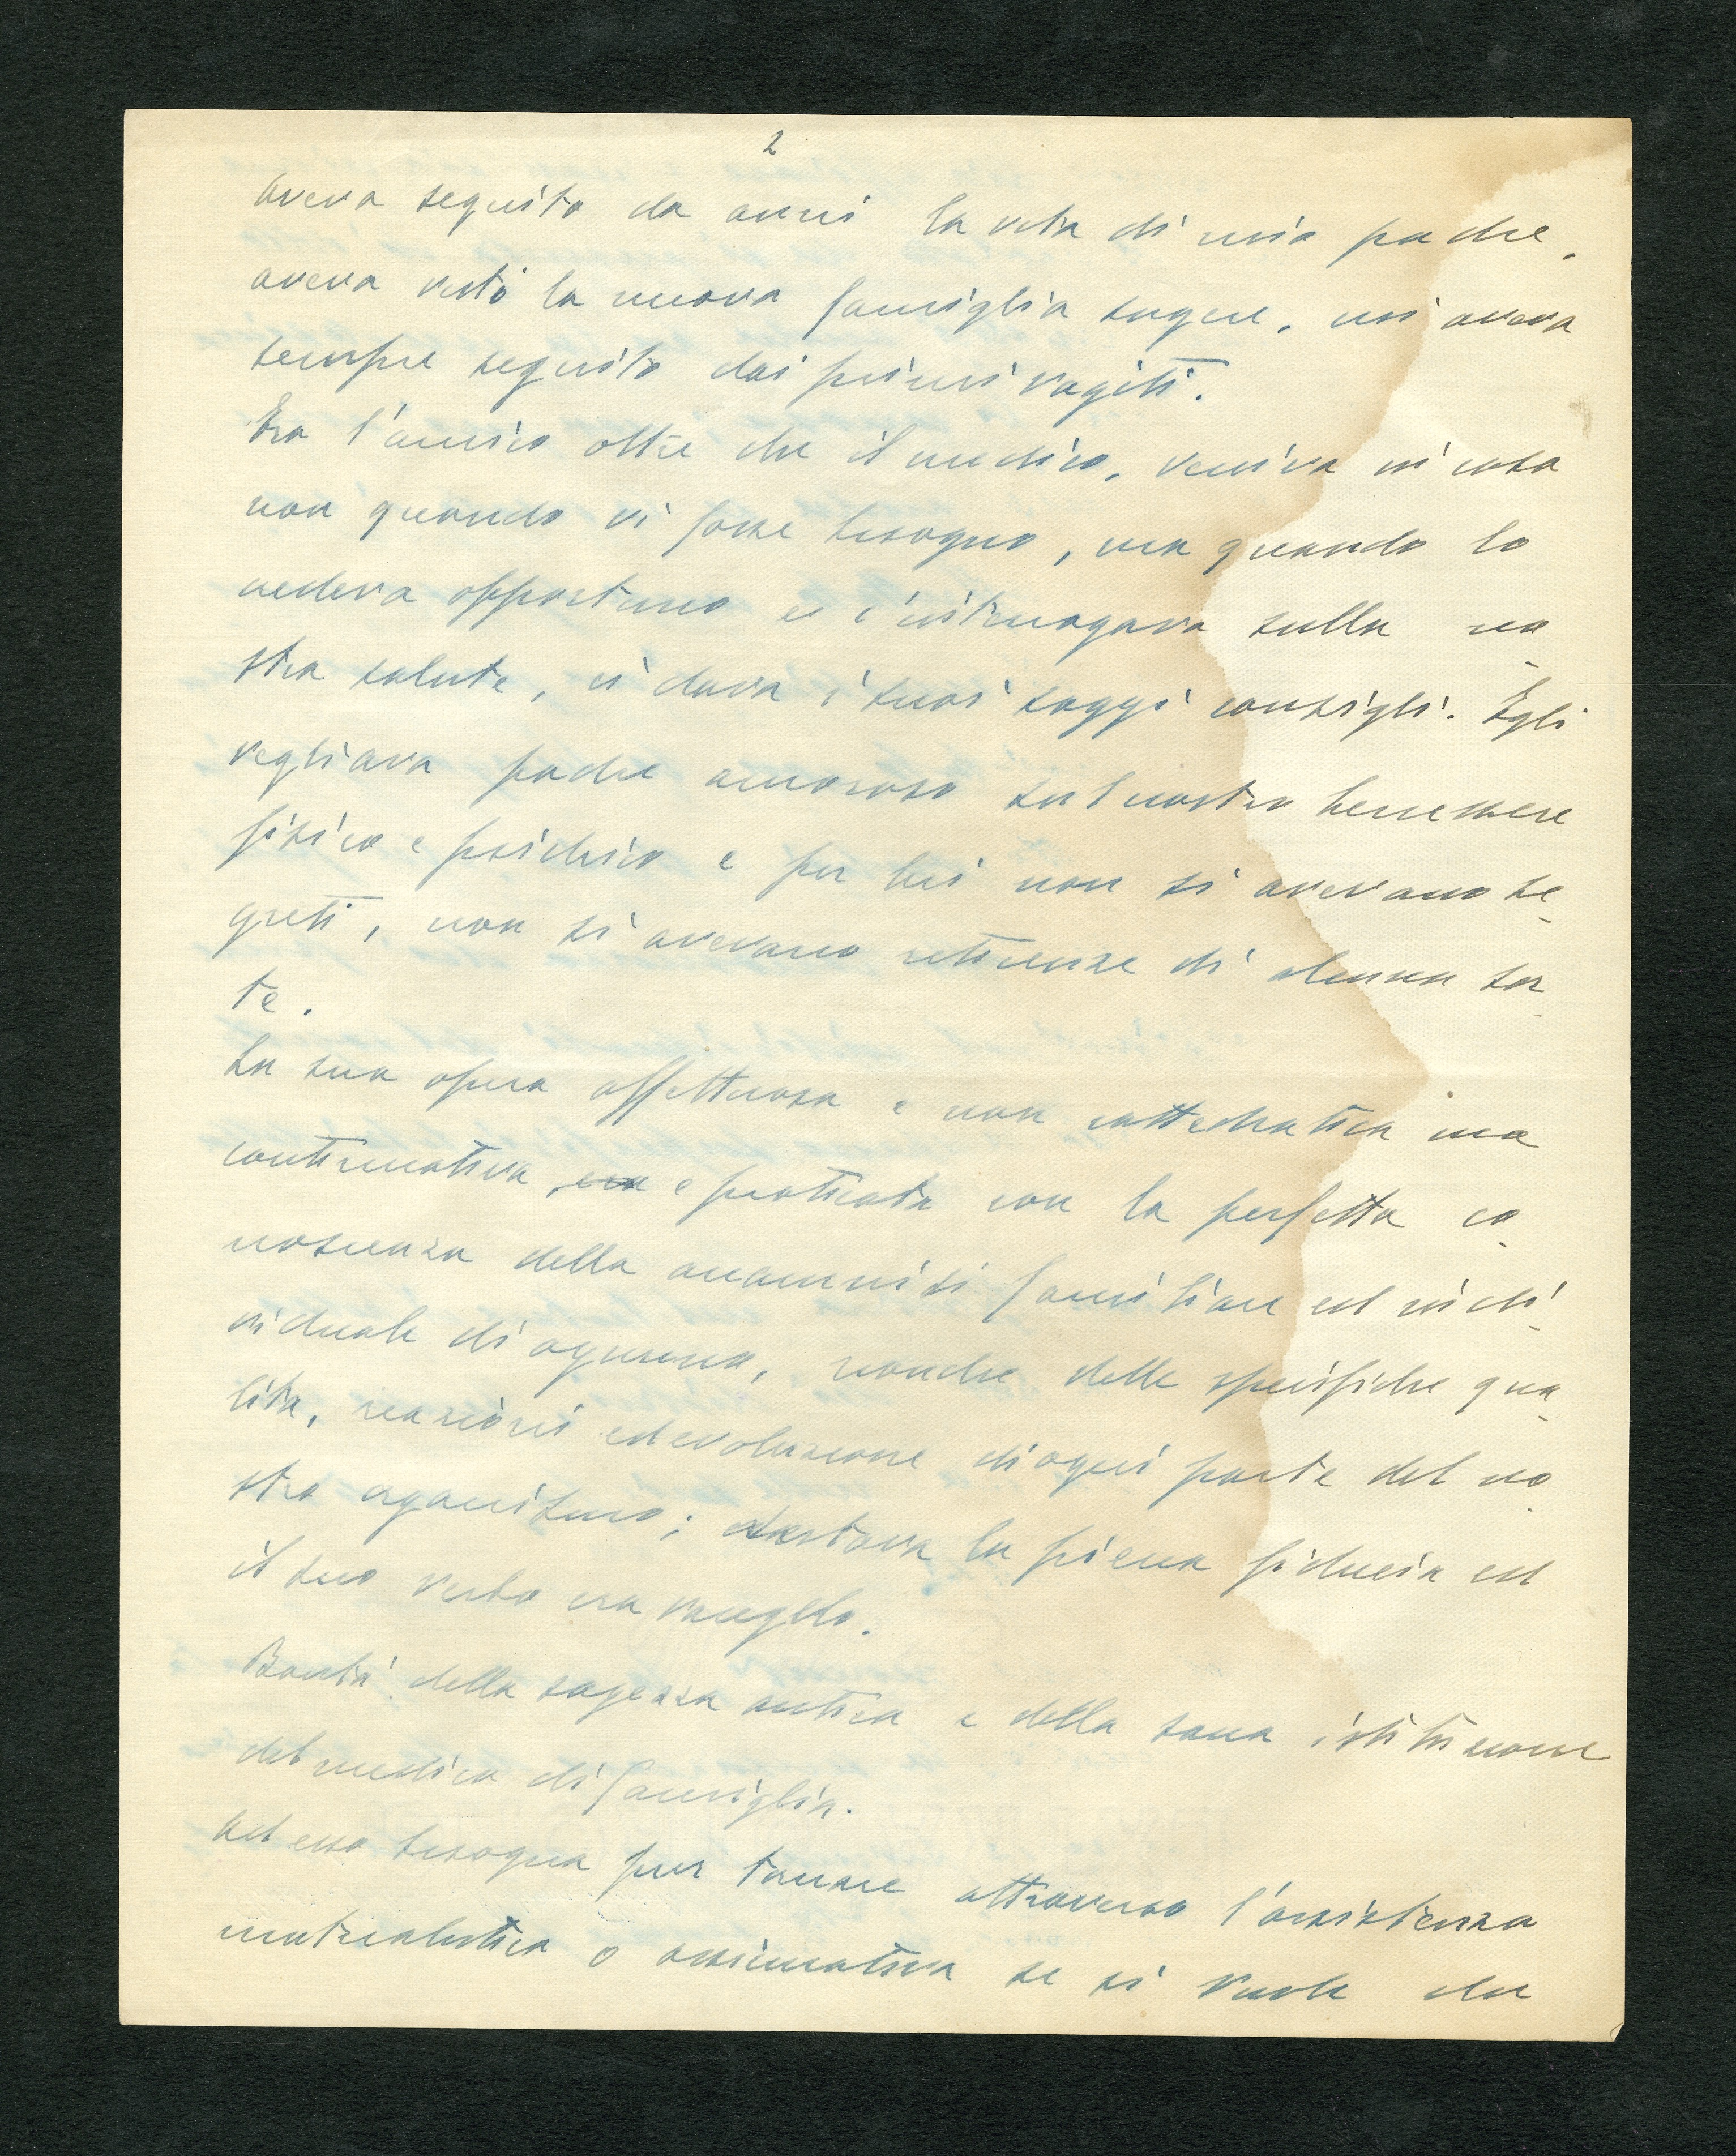 2
aveva seguito da anni la vita di mio padre,
aveva visto la nuova famiglia sugere, mi aveva
sempre seguito dai primi vagiti.
Era l'amico oltre che il medico, veniva in casa
non quando vi fosse bisogno, ma quando lo
vedeva opportuno e c'interrogava sulla no_
stra salute, ci dava i suoi saggi consigli. Egli
vegliava padre amoroso sul nostro benessere
fisico e psichico e per lui non si avevano se_
greti, non si avevano reticenze di alcuna sor_
te.
La sua opera affettuosa e non cattedratica ma
continuativa, era e praticata con la perfetta co_
noscenza della anamnisi familiare ed indi_
viduale di ognuno, nonche delle specifiche qua_
lita, reazioni ed evoluzione di ogni parte del no_
stro organismo; destava la piena fiducia ed
il suo verbo era vangelo.
Bontà della sagezza antica e della sana istituzione
del medico di famiglia.
Ad essa bisogna pur tornare attraverso l'assistenza
mutualistica o assicurativa se si vuole che